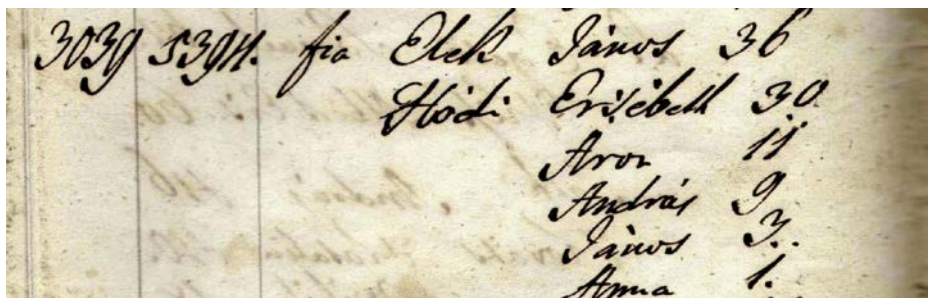 3039 5394. fia Elek János 36
Hódi Ersébeth 30
Áron 11
András 9
János 3.
Anna 1.